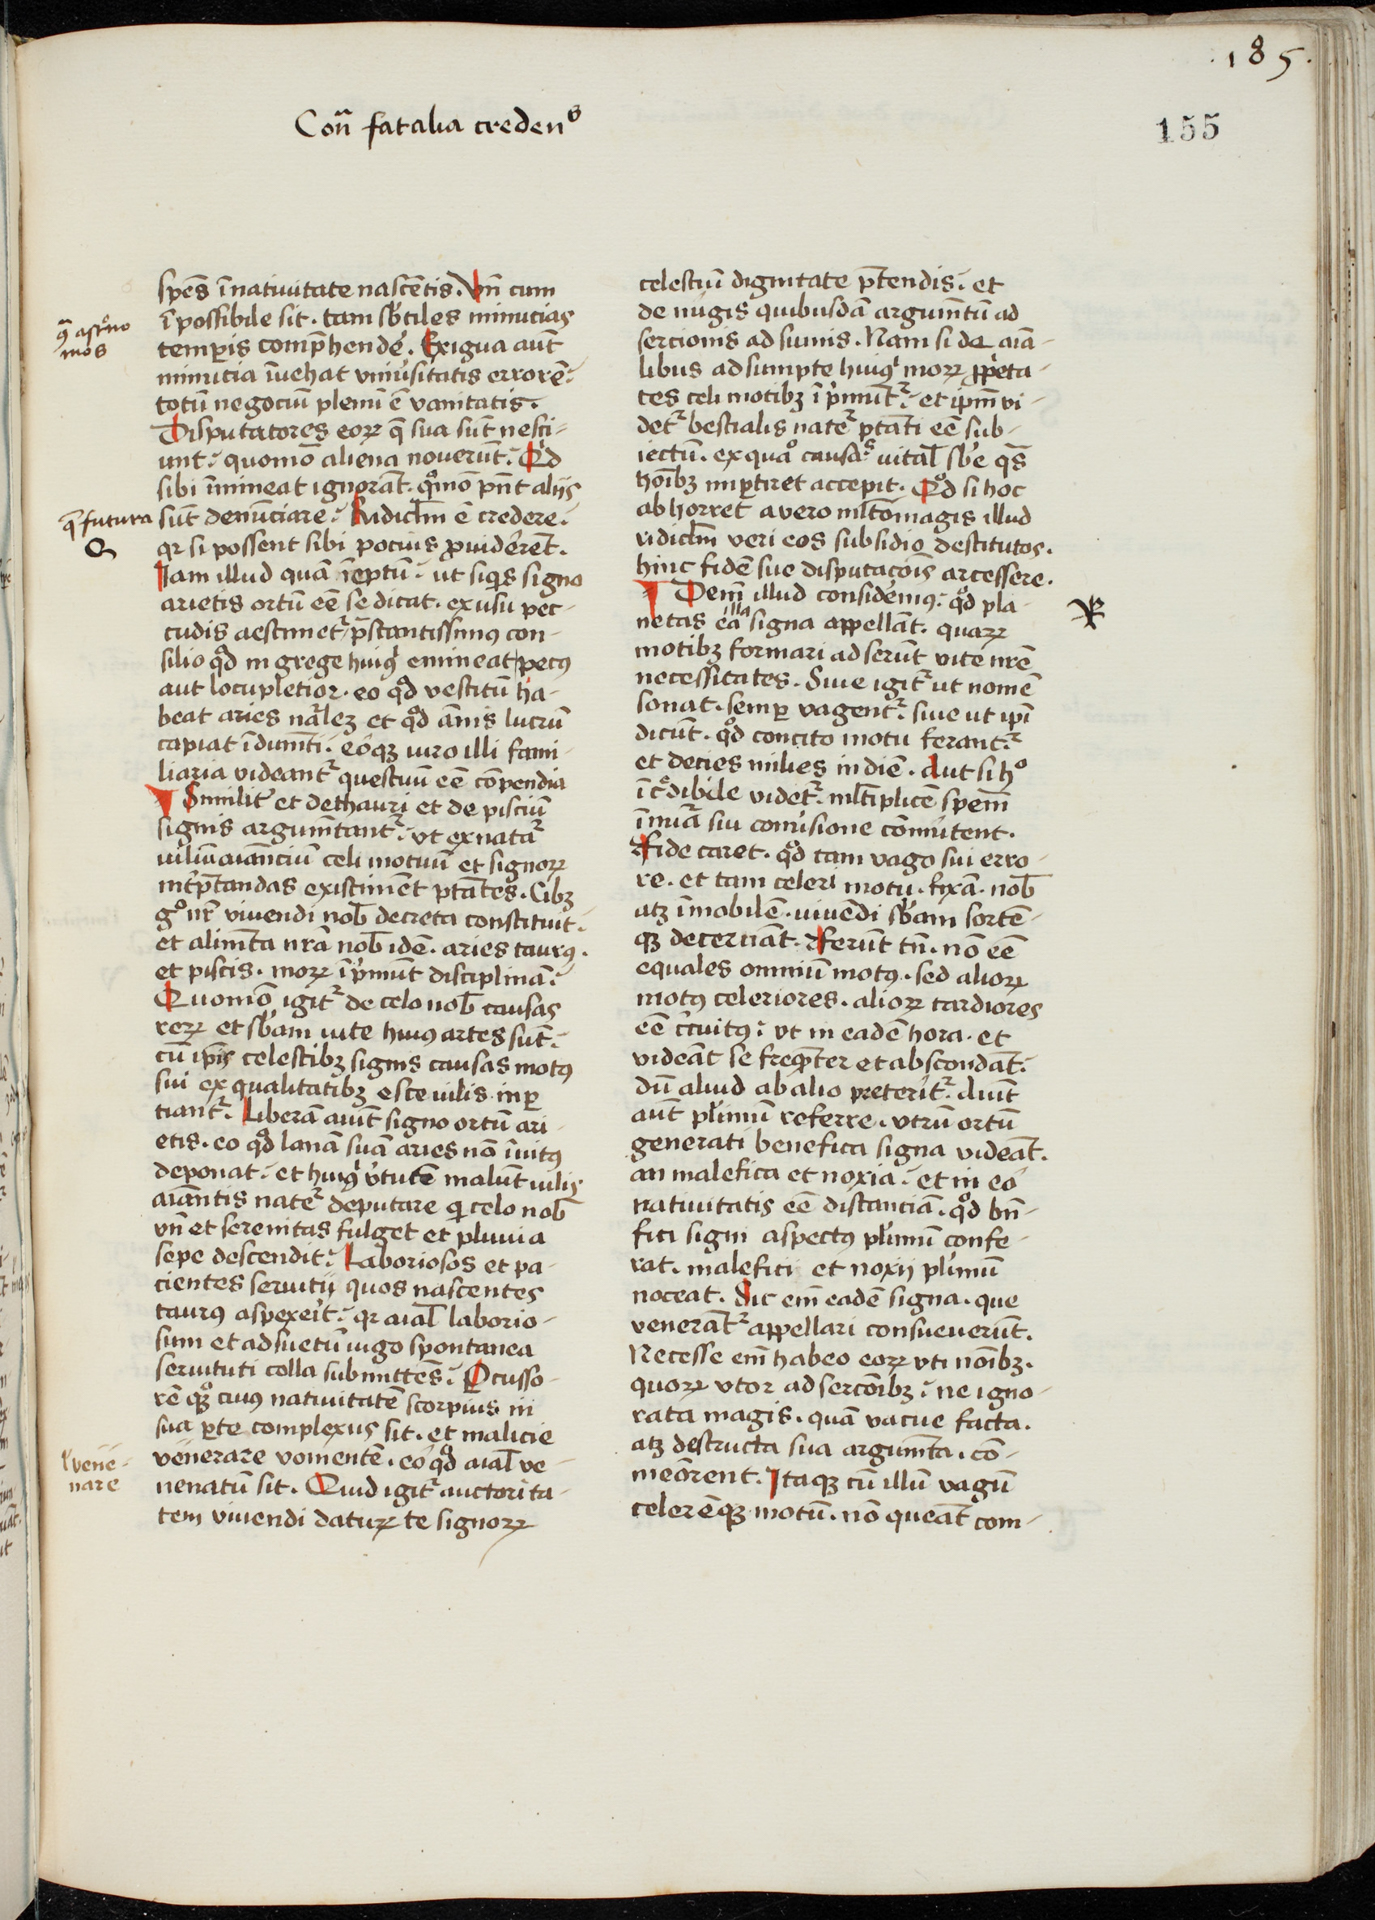 .185.
155
Con̄ fatalia credenˢ
spēs ī natiuitate nascētis. Vn̄ cum
īpossibile sit. tam sb̾tiles minutias
temꝑis comp̄hende͛. Exigua aut̄
minutia īuehat vniu͛sitatis errorē:
totū negociū plenū ē vanitatis.
Disputatores eoꝝ q̄ sua sūt nesci-
unt: quomō aliena nouerūt: Qd̓
sibi īmineat ignorāt. qͦmō pn̄t aliis
sūt denūciare: Ridiclm̄ ē credere:
qꝛ si possent sibi pocius ꝓuiderēt.
Iam illud quā īeptū: ut siq̓s signo
arietis ortū eē se dicat. ex usu pec-
cudis aestimetᷣ p̄stantissimꝰ con-
silio qd̓ in grege huiꝰ emineat pecꝰ
aut locupletior. eo qd̓ vestitū ha-
beat aries nāˡez et qd̓ ānis lucrū
capiat īdum̄ti: eoqꝫ uiro illi fami-
liaria videantᷣ questuū eē cōpendia
Similit̓ et de thauri et de pisciū
signis argum̄tantᷣ: vt ex natāᷣ
uiliū aīanciū celi motuū et signoꝝ
int̓p̄tandas existimēt ptāˢtes. Cibꝫ
gͦ nr̄ viuendi nob̄ decreta constituit:
et alim̄ta nr̄a nob̄ idē. aries taurꝰ.
et piscis. moꝝ īp̓mūt disciplinā:
Quomō igitᷣ de celo nob̄ causas
reꝝ et sb̄am uite huius artes sūt:
cū ip̄is celestibꝫ signis causas motꝰ
sui ex qualitatibꝫ esce uilis inꝑ
tiantᷣ. Liberā aiūt signo ortū ari-
etis. eo qd̓ lanā suā aries nō īuitꝰ
deponat: et huiꝰ v̓tutē malūt uilis
aīantis natēᷣ deputare qͥ celo nob̄
vn̄ et serenitas fulget et pluuia
sepe descendit: Laboriosos et pa-
cientes seruitij quos nascentes
taurꝰ aspexeīt: qꝛ aīal̄ laborio-
sum et adsuetū iugo spontanea
seruituti colla submittēs: Ꝑcusso-
rē qꝫ cuiꝰ natiuitatē scorpius in
sua ꝑte complexus sit. et malicie
venerare vomentē. eo qd̓ aīal̄ ve-
nenatū sit. Quid igitᷣ auctorita-
tem viuendi datuꝝ te signoꝝ
celestiū dignitate p̄tendis: et
de nugis quibusdā argum̄tū ad
sercionis adsumis. Nam si de aīa-
libus adsumpte huiꝰ moꝝ ꝓp̓eta-
tes celi motibꝫ īp̓muntᷣ: et ip̄m vi-
detᷣ bestialis natēᷣ ptāˢti eē sub-
iectū. ex qua causāˢ vital̄ sb̄e q̓s
hoībꝫ inꝑtiret accepit. Qd̓ si hoc
abhorret a vero ml̄to magis illud
ridiclm̄ veri eos subsidio destitutos.
hinc fidē sue disputacōis arcessere.
Dem̄ illud considem̓ꝰ: qd̓ pla-
netas ea illa signa appellāt. quaꝝ
motibꝫ formari adserūt vite nr̄e
necessitates. Siue igitᷣ ut nomē
sonat. semꝑ vagentᷣ: siue ut ip̄i
dicūt. qd̓ concito motu ferantᷣ
et decies milies in diē. Aut si hͦ
īcr̓dibile videtᷣ. ml̄tiplicē spem̄
īnuā͛ sui conu͛sione cōmutent.
Fide caret. qd̓ tam vago sui erro-
re. et tam celeri motu. fixā. nob̄
atꝫ īmobilē. uiuēdi sb̄am sortē-
qꝫ decernāt. Ferūt tn̄. nō eē
equales omniū motꝰ. sed alioꝝ
motꝰ celeriores. alioꝝ tardiores
eē cr̓cuitꝰ: vt in eadē hora. et
videāt se freq̄nter et abscondāt:
dū aliud ab alio preteritᷣ. Aiūt
aūt pl̓imū referre. vtrū ortū
generati benefica signa videāt.
an malefica et noxia: et in eo
natiuitatis eē distanciā. qd̓ bn̄-
fici signi aspectꝰ pl̓imū confe-
rat. malefici et noxij pl̓imū
noceat. Sic em̄ eadē signa. que
venerantᷣ appellari consueuerūt.
Necesse em̄ habeo eoꝝ vti noībꝫ.
quoꝝ vtor adsercōibꝫ: ne igno-
rata magis. quā vacue facta.
atꝫ destructa sua argum̄ta. cō-
meōrent. Itaqꝫ cū illū vagū
celerēqꝫ motū. nō queāt com-
q̄ astrͦno
mos
q̄ futura
l̓ vene-
nare